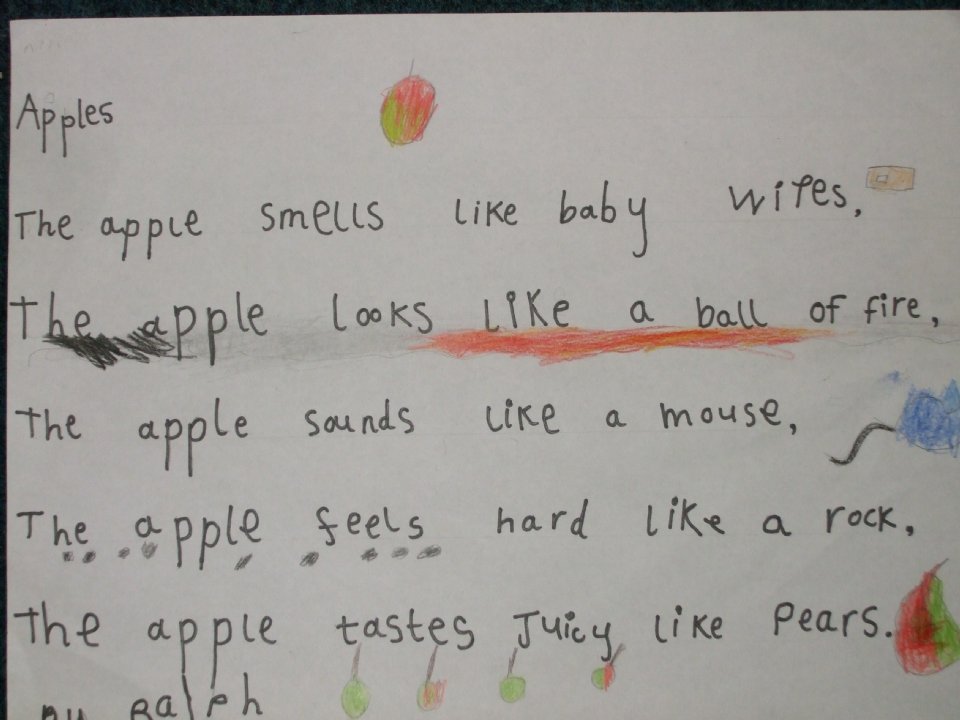 Apples
The apple smells like baby wipes,
The apple looks like a ball of fire,
The apple sounds like a mouse,
The apple feels hard like a rock,
The apple tastes Juicy like Pears.
by Ralph